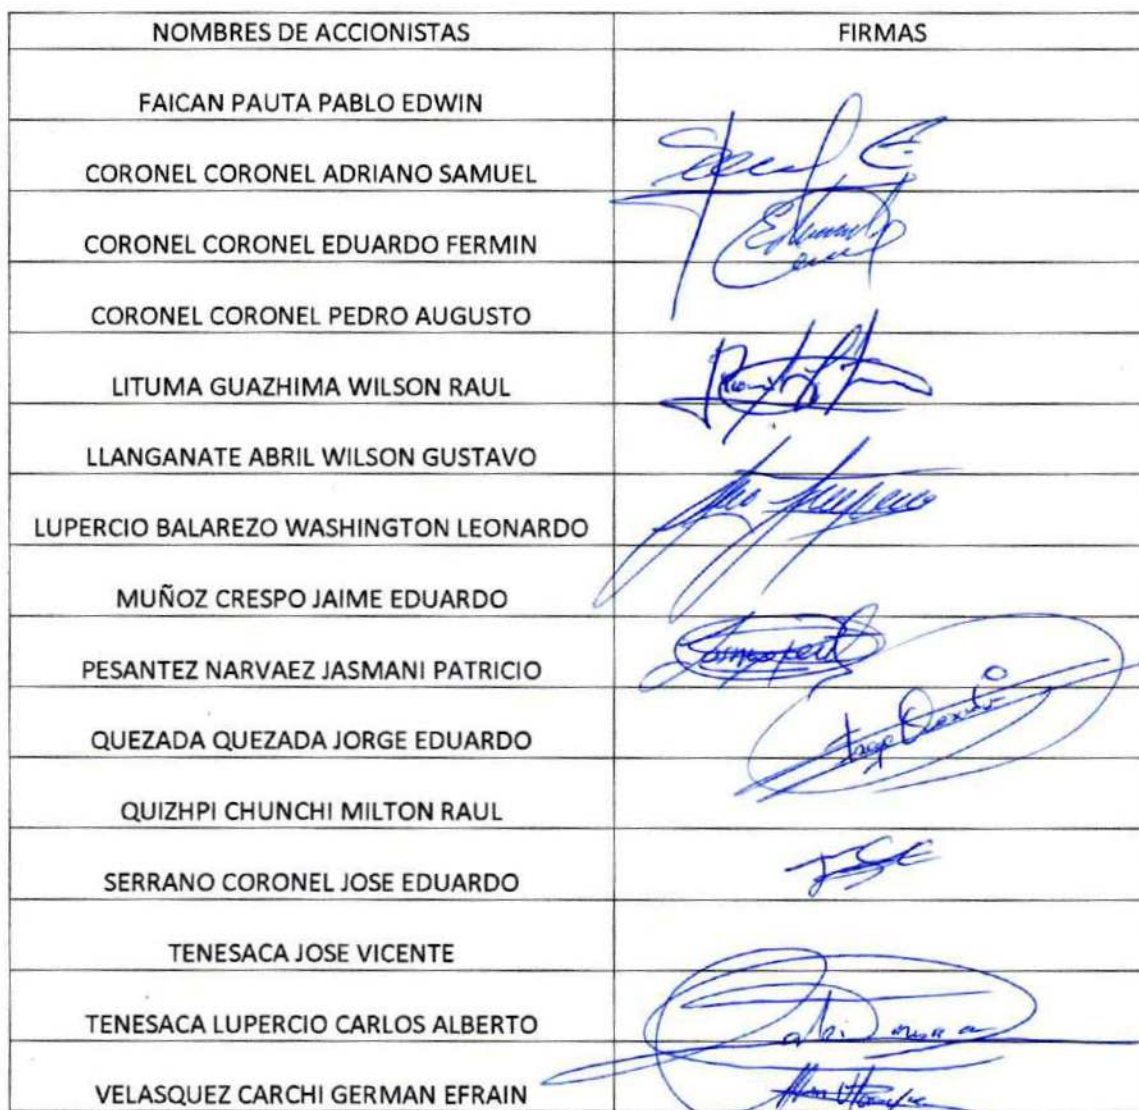 NOMBRES DE ACCIONISTAS FIRMAS
FAICAN PAUTA PABLO EDWIN
CORONEL CORONEL ADRIANO SAMUEL
CORONEL CORONEL EDUARDO FERMIN
CORONEL CORONEL PEDRO AUGUSTO
LITUMA GUAZHIMA WILSON RAUL
LLANGANATE ABRIL WILSON GUSTAVO
LUPERCIO BALAREZO WASHINGTON LEONARDO
MUÑOZ CRESPO JAIME EDUARDO
PESANTEZ NARVAEZ JASMANI PATRICIO
QUEZADA QUEZADA JORGE EDUARDO
QUIZHPI CHUNCHI MILTON RAUL
SERRANO CORONEL JOSE EDUARDO
TENESACA JOSE VICENTE
TENESACA LUPERCIO CARLOS ALBERTO
VELASQUEZ CARCHI GERMAN EFRAIN